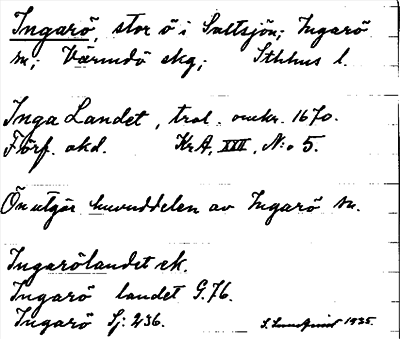 Ingarö, stor ö i Saltsjön; Ingarö
sn; Värmdö skg; Sthlms l.
Inga Landet, trol. omkr. 1670.
Förf. okd. KrA, XIII, N:o 5.
Ön utgör huvuddelen av Ingarö sn.
Ingarölandet ek.
Ingarö landet G.76.
Ingarö Sj: 236.
1935.